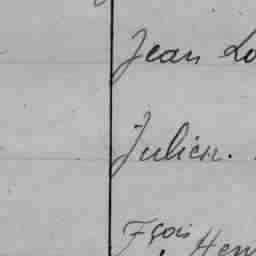 Jean Lo
Julien.
Fçois Hen